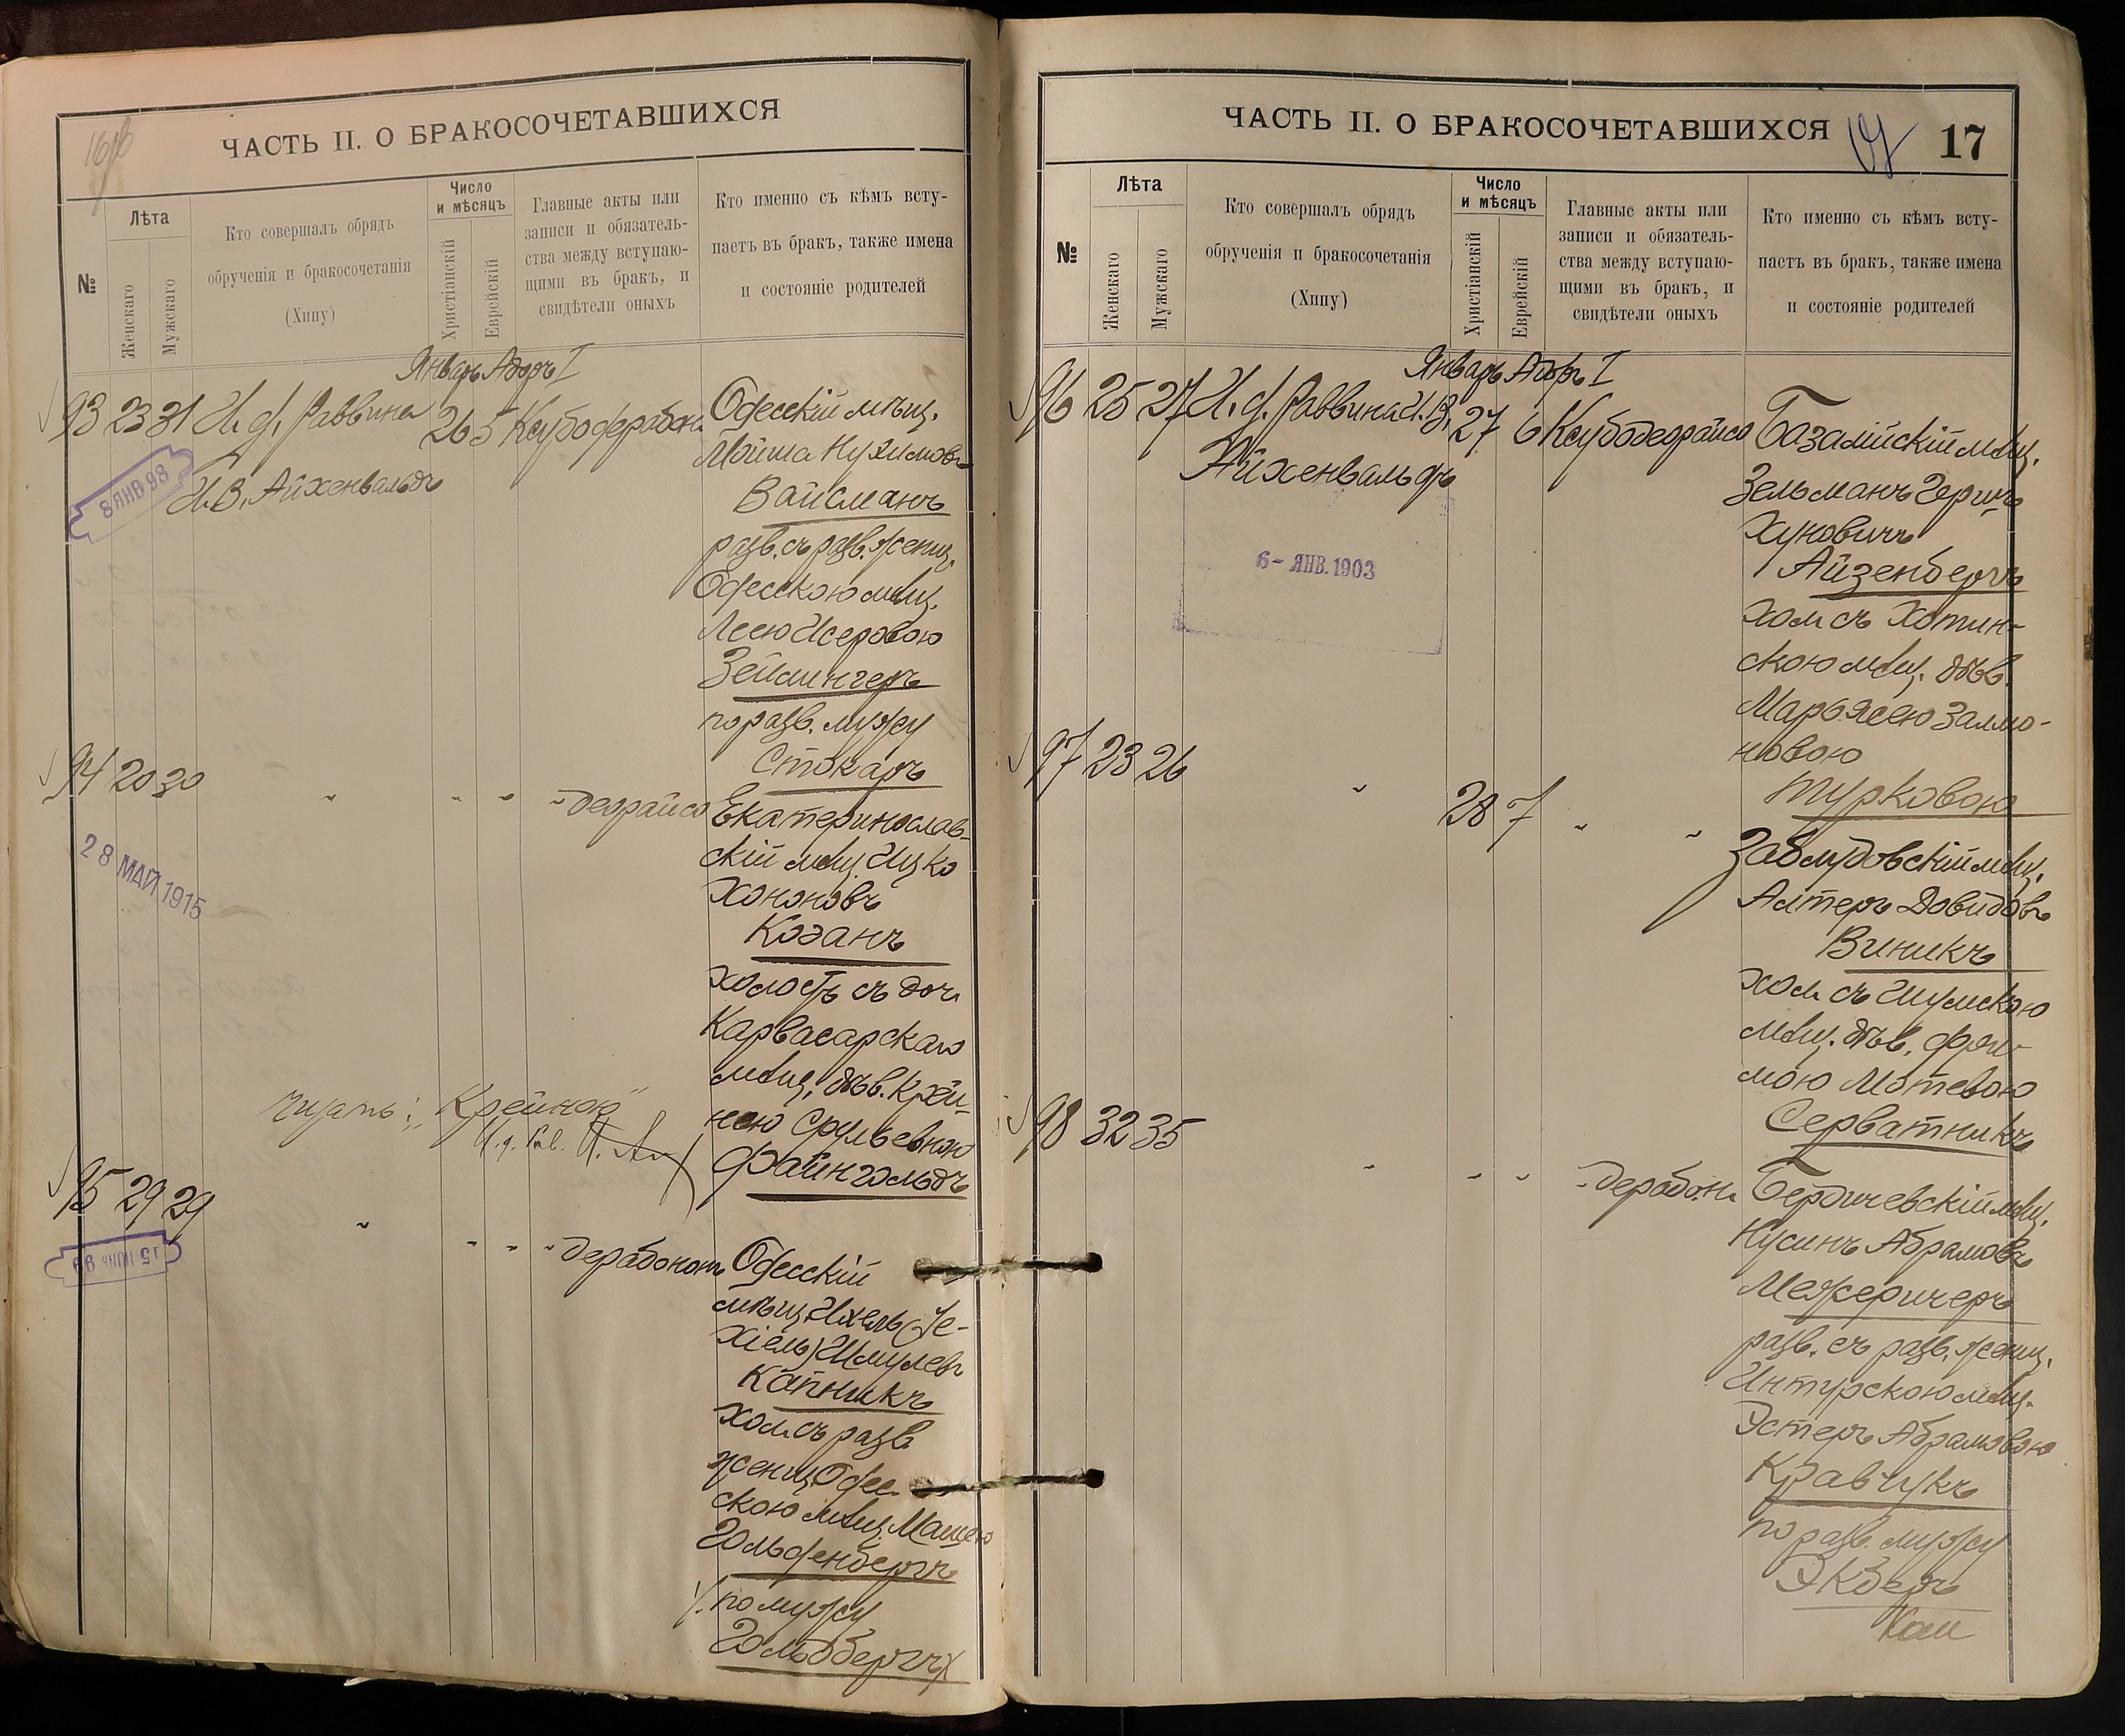 16об
ЧАСТЬ II. О БРАКОСОЧЕТАВШИХСЯ
№
Лѣта
Женскаго
Мужскаго
Кто совершалъ обрядъ
обрученія и бракосочетанія
(Хипу)
Число
и мѣсяцъ
Христіанскій
Еврейскій
Главные акты или
записи и обязатель-
ства между вступаю-
щими въ бракъ, и
свидѣтели оныхъ
Кто именно съ кѣмъ всту-
паетъ въ бракъ, также имена
и состояніе родителей
Январь Адоръ I
93 23 31 И. д. Раввина 26 5 Ксубодерабон.
И.В. Айхенвальдъ
8 ЯНВ 98
Одесскій мѣщ.
Мойша Нухимовъ
Вайсманъ
разв. съ разв. женщ.
Одесскою мѣщ.
Леею Исеровою
Зейлингеръ
по разв. мужу
Стокаръ
94 20 30 " " " " деорайсо
28 МАЙ 1915
Екатеринослав-
скій мѣщ. Ицко
Хононовъ
Коганъ
холостъ съ доч.
Карвасарскаго
мѣщ. дѣв. Крей-
ною Срульевною
Файнгольдъ
читать: „Крейною"
И. д. Рав.
95 29 29 " " " " дерабононъ
15 ІЮНЯ 99
Одесскій
мѣщ. Ихель (Іе-
хіель) Шмулевъ
Капникъ
хол. съ разв.
женщ. Одес-
скою мѣщ. Машею
Гольденбергъ
по мужу
Гольдбергъ
ЧАСТЬ II. О БРАКОСОЧЕТАВШИХСЯ
17
№
Лѣта
Женскаго
Мужскаго
Кто совершалъ обрядъ
обрученія и бракосочетанія
(Хипу)
Число
и мѣсяцъ
Христіанскій
Еврейскій
Главные акты или
записи и обязатель-
ства между вступаю-
щими въ бракъ, и
свидѣтели оныхъ
Кто именно съ кѣмъ всту-
паетъ въ бракъ, также имена
и состояніе родителей
Январь Адоръ I
96 25 27 И. д. Раввина И.В. 27 6 Ксубодеорайсо
Айхенвальдъ
6 - ЯНВ. 1903
Базалійскій мѣщ.
Зельманъ Герш-
Хуновичъ
Айзенбергъ
хол. съ Хотин-
скою мѣщ. дѣв.
Марьясею Залмо-
новою
Турковою
97 23 26 " 28 7 " "
Заблудовскій мѣщ.
Алтеръ Довидовъ
Виникъ
хол. съ Шумскою
мѣщ. дѣв. Фру-
мою Мотевою
Серватникъ
98 32 35 " " " " дерабон.
Бердичевскій мѣщ.
Нусинъ Абрамовъ
Межеричеръ
разв. съ разв. женщ.
Интурскою мѣщ.
Эстеръ Абрамовою
Кравчукъ
по разв. мужу
Экберъ